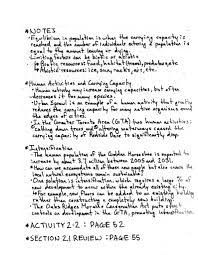 *NOTES
-Equilibrium in population is when the carrying capacity is
reached, and the number of individuals entering a population is
equal to the number leaving or dying.
-Limiting factors can be biotic or abiotic
*Biotic resources: food, habitat (trees), predators, etc.
*Abiotic resources: ice, snow, rocks, air, etc.
*Human Activities and Carrying Capacity
-Human activity may increase carrying capacities, but often
decreases it for many species.
-Urban Sprawl is an example of a human activity that greatly
reduces the carrying capacity for many native organisms around
the edges of cities.
-In the Greater Toronto Area (GTA) this human activities:
*Cutting down trees and altering waterways caused the
carrying capacity of Rabbits Deer to significantly drop.
*Intensification
-The human population of the Golden Horseshoe is expected to
increase by about 3.7 million between 2005 and 2031.
-How can we accommodate all of these new people but also ensure the
local natural ecosystems remain sustainable?
-One solution is intensification, which requires a large % of
new development to occur within the already existing city.
*For example, new floors can be added to an existing building
rather than constructing a completely new building!
-The Oaks Ridges Moraine Conservation Act puts strict
controls on development in the GTA, promoting intensification.
*ACTIVITY 2-2 : PAGE 52
*SECTION 2.1 REVIEW : PAGE 55